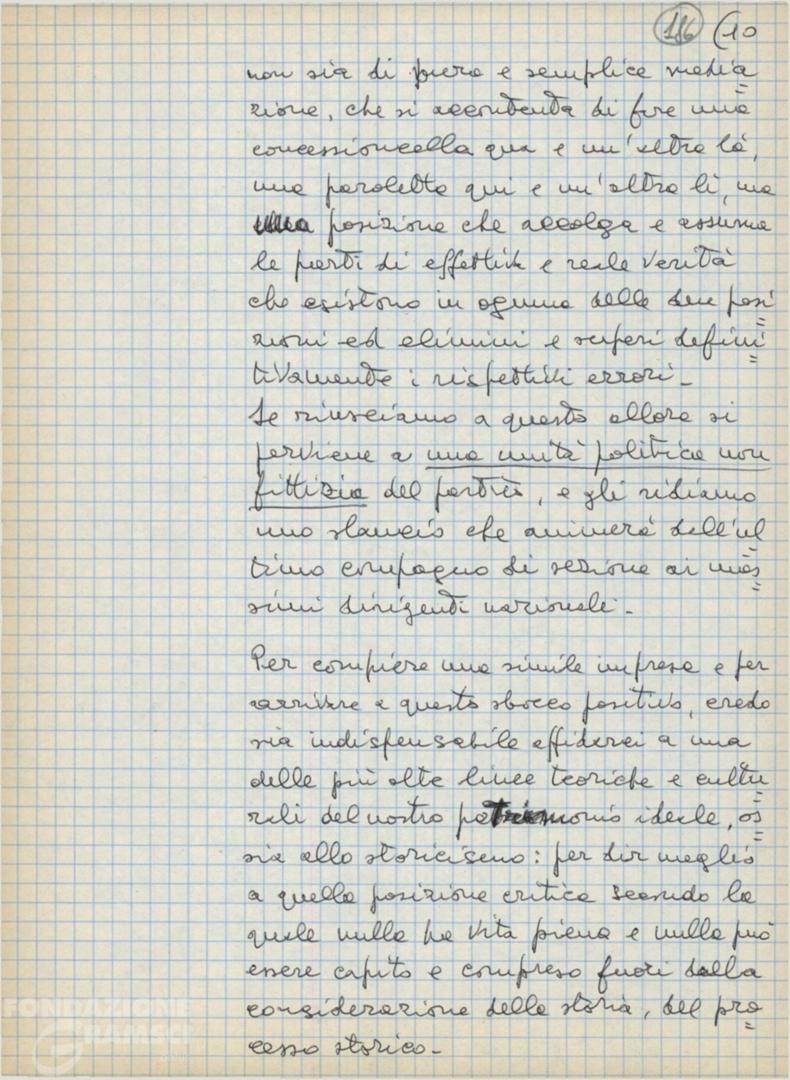 186 (10
non sia di pura e semplice media
zione, che si accontenta di fare una
concessioncella qua e un'altra là,
una paroletta qui e un'altra lì, ma
una posizione che accolga e assuma
le parti di effettiva e reale verità
che esistono in ognuna delle due posi
zioni ed elimini e superi defini
tivamente i rispettivi errori_
Se riusciamo a questo allora si
perviene a una unità politica non
fittizia del partito, e gli ridiamo
uno slancio che animerà dall'ul
timo compagno di sezione ai mas
simi dirigenti nazionali_
Per compiere una simile impresa e per
arrivare a questo sbocco positivo, credo
sia indispensabile affidarci a una
delle più alte linee teoriche e cultu
rali del nostro patrimonio ideale, os
sia allo storicismo: per dir meglio
a quella posizione critica secondo la
quale nulla ha vita piena e nulla può
essere capito e compreso fuori dalla
considerazione della storia, del pro
cesso storico_
FONDAZIONE
GRAMSCI